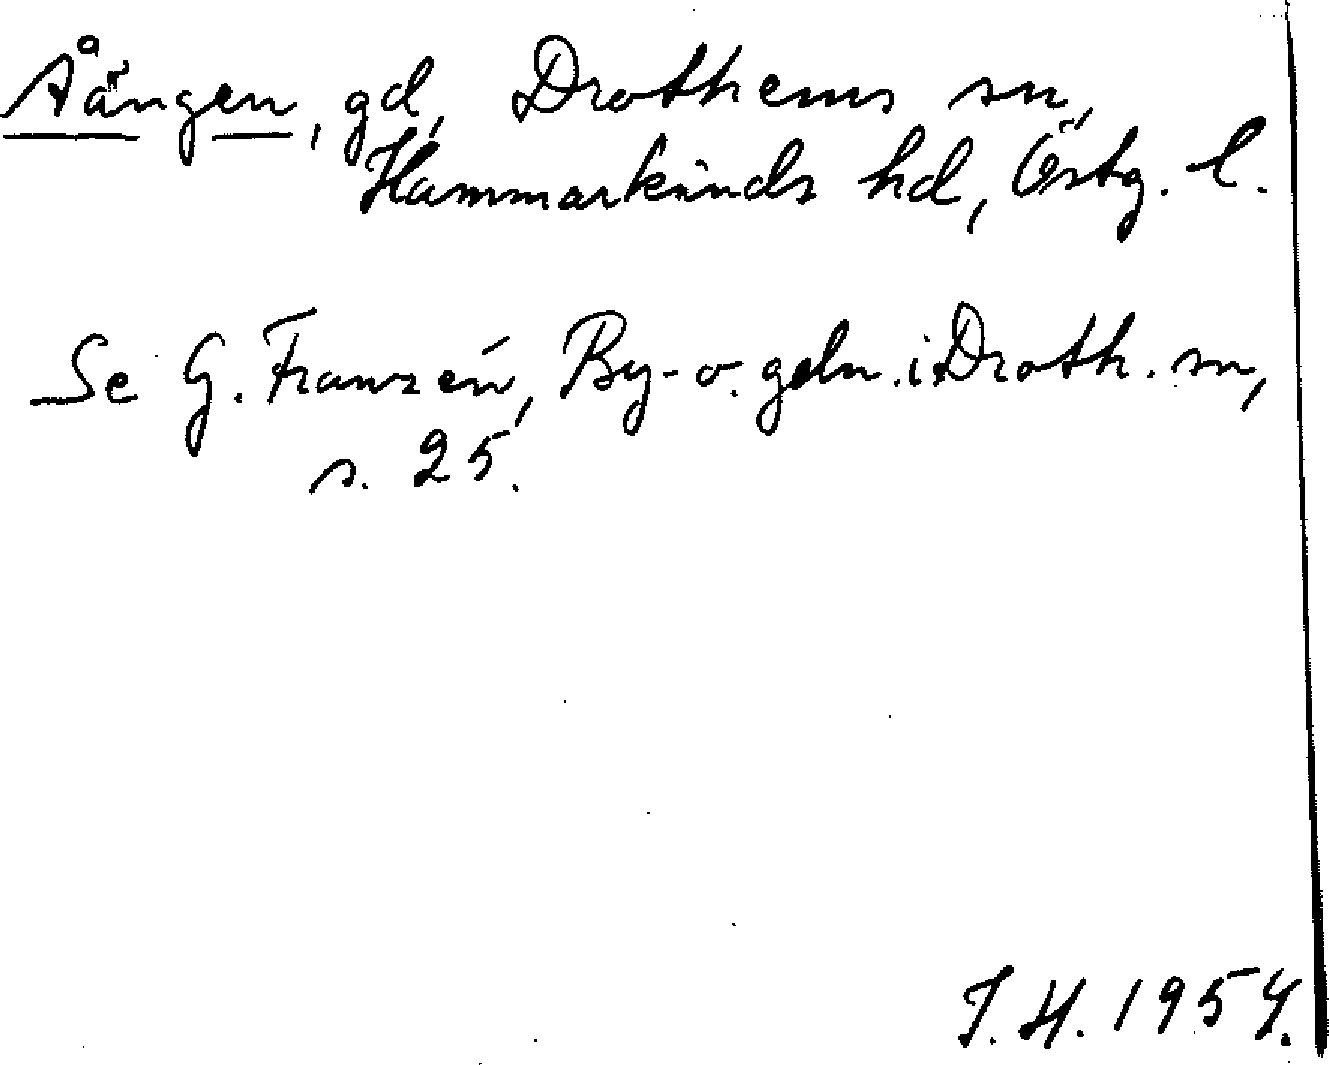 Åängen, gd, Drothems sn,
Hammarkinds hd, Östg. l.
Se G. Franzén, By- o. gdn. i Droth. sn,
s. 25.
J. H. 1954.